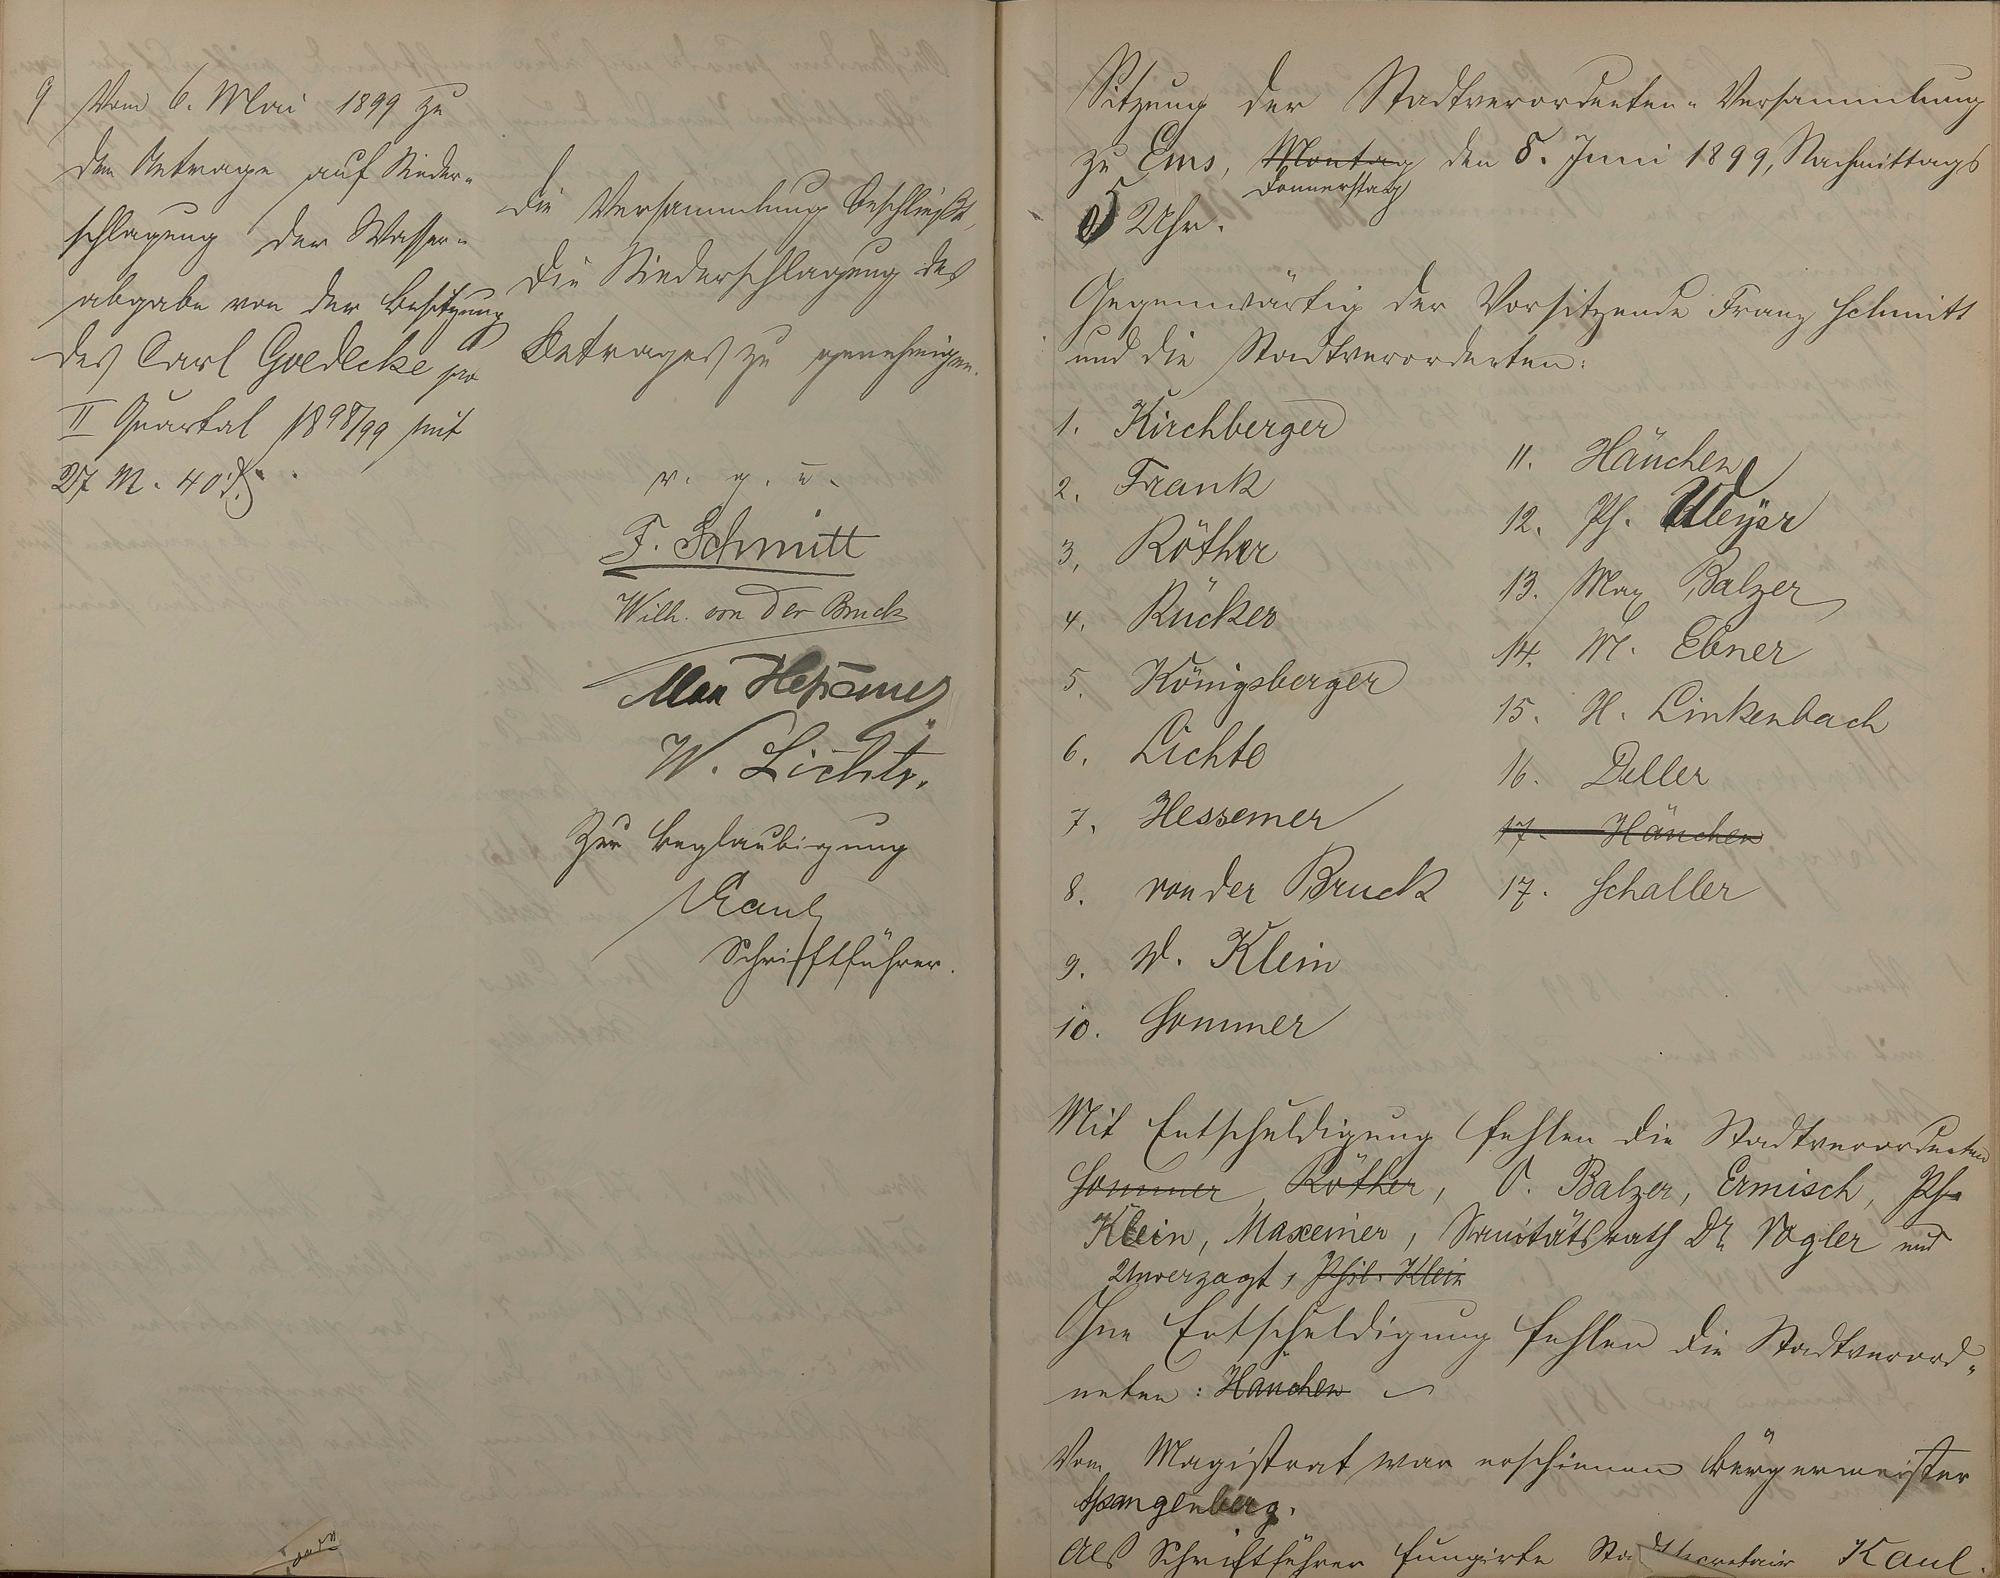 9 Vom 6. Mai 1899 zu
dem Antrage auf Nieder-
schlagung der Wasser-
abgabe von der Besitzung
des Carl Goedecke pro
II Quartal 1898/99 mit
27 M. 40 ₰.
Die Versammlung beschließt,
die Niederschlagung des
Betrages zu genehmigen.
v. g. u.
F. Schmitt
Wilh. von der Bruck
Max Hessemer
W. Lichte.
Zur Beglaubigung
Kaul
Schriftführer.
Sitzung der Stadtverordneten-Versammlung
zu Ems, Montag den 8. Juni 1899, Nachmittags
Donnerstag
5 Uhr.
Gegenwärtig der Vorsitzende Franz Schmitt
und die Stadtverordneten:
1. Kirchberger
2. Frank
3. Röther
4. Rücker
5. Königsberger
6. Lichte
7. Hessemer
8. von der Bruck
9. W. Klein
10. Sommer
11. Hänchen
12. Ph. Weyer
13. Max Balzer
14. M. Ebner
15. H. Linkenbach
16. Deller
17. Hänchen
17. Schaller
Mit Entschuldigung fehlen die Stadtverordneten
Sommer, Röther, O. Balzer, Ermisch, Ph.
Klein, Maxeiner, Sanitätsrath Dr. Vogler und
Unverzagt, Phil. Klein
Ohne Entschuldigung fehlen die Stadtverord-
neten: Hänchen
Vom Magistrat war erschienen Bürgermeister
Spangenberg.
Als Schriftführer fungirte Stadtsecretair Kaul.